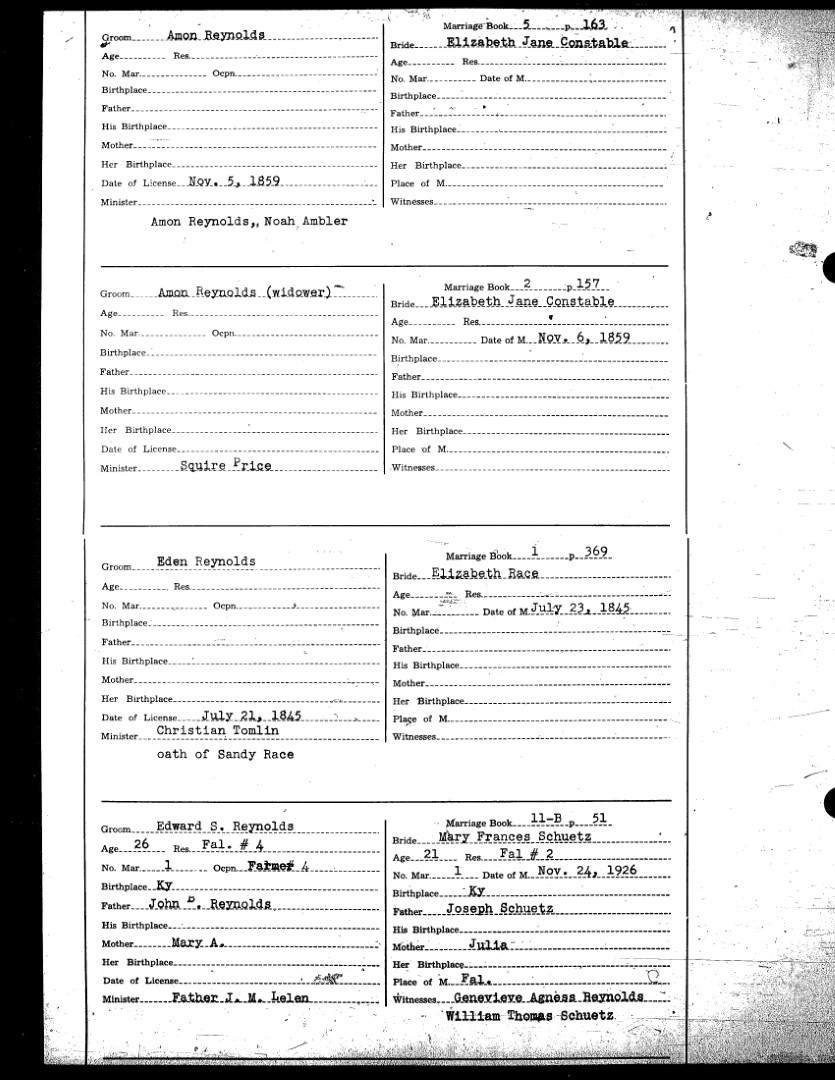 Groom Amon Reynolds
Age Res.
No. Mar. Ocpn.
Birthplace
Father
His Birthplace
Mother
Her Birthplace
Date of License Nov. 5, 1859
Minister
Amon Reynolds,, Noah Ambler
Marriage Book 5 p. 163
Bride Elizabeth Jane Constable
Age Res.
No. Mar. Date of M.
Birthplace
Father
His Birthplace
Mother
Her Birthplace
Place of M.
Witnesses
Groom Amon Reynolds (widower)
Age Res.
No. Mar. Ocpn.
Birthplace
Father
His Birthplace
Mother
Her Birthplace
Date of License
Minister Squire Price
Marriage Book 2 p. 157
Bride Elizabeth Jane Constable
Age Res.
No. Mar. Date of M. Nov. 6, 1859
Birthplace
Father
His Birthplace
Mother
Her Birthplace
Place of M.
Witnesses
Groom Eden Reynolds
Age Res.
No. Mar. Ocpn.
Birthplace
Father
His Birthplace
Mother
Her Birthplace
Date of License July 21, 1845
Minister Christian Tomlin
oath of Sandy Race
Marriage Book 1 p. 369
Bride Elizabeth Race
Age Res.
No. Mar. Date of M. July 23, 1845
Birthplace
Father
His Birthplace
Mother
Her Birthplace
Place of M.
Witnesses
Groom Edward S. Reynolds
Age 26 Res. Fal. # 4
No. Mar. 1 Ocpn. Farmer 4
Birthplace Ky
Father John D. Reynolds
His Birthplace
Mother Mary A.
Her Birthplace
Date of License
Minister Father J. M. Lelen
Marriage Book 11-B p. 51
Bride Mary Frances Schuetz
Age 21 Res. Fal # 2
No. Mar. 1 Date of M. Nov. 24, 1926
Birthplace Ky
Father Joseph Schuetz
His Birthplace
Mother Julia
Her Birthplace
Place of M. Fal.
Witnesses Genevieve Agness Reynolds
William Thomas Schuetz